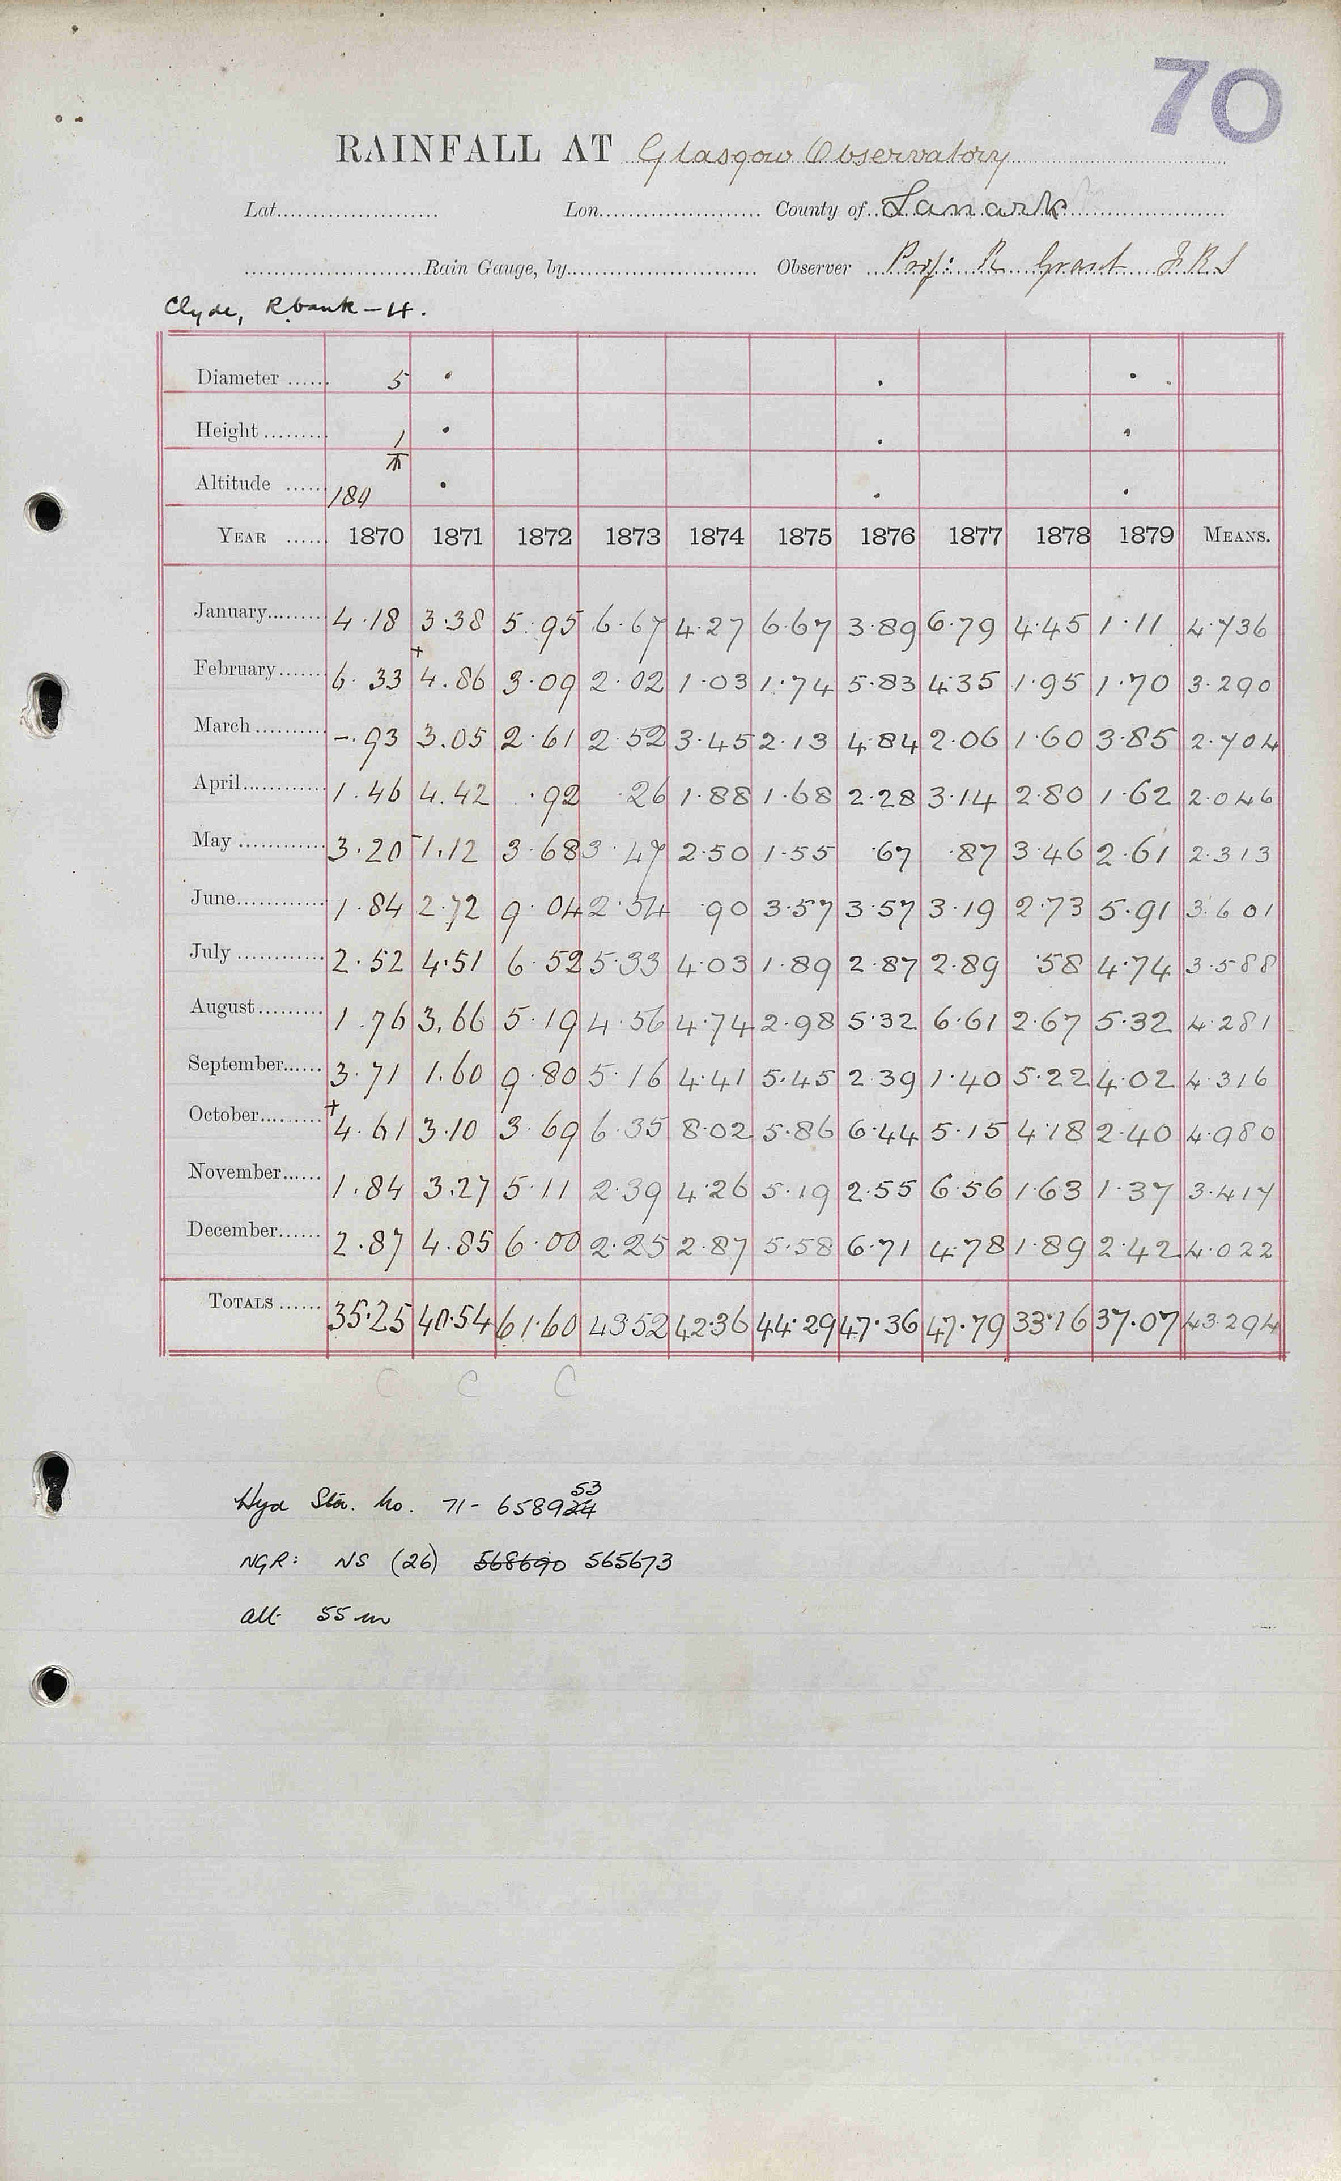 70
RAINFALL AT Glasgow Observatory
Lat. Lon. County of Lanark
Rain Gauge, by Observer Prof: R Grant F.R.S
Clyde, R bank - H.
Diameter 5
Height 1
Altitude 180
YEAR 1870 1871 1872 1873 1874 1875 1876 1877 1878 1879 MEANS.
January 4.18 3.38 5.95 6.67 4.27 6.67 3.89 6.79 4.45 1.11 4.736
February 6.33 +4.86 3.09 2.02 1.03 1.74 5.83 4.35 1.95 1.70 3.290
March -.93 3.05 2.61 2.52 3.45 2.13 4.84 2.06 1.60 3.85 2.704
April 1.46 4.42 .92 .26 1.88 1.68 2.28 3.14 2.80 1.62 2.046
May 3.20 1.12 3.68 3.47 2.50 1.55 .67 .87 3.46 2.61 2.313
June 1.84 2.72 9.04 2.54 .90 3.57 3.57 3.19 2.73 5.91 3.601
July 2.52 4.51 6.52 5.33 4.03 1.89 2.87 2.89 .58 4.74 3.588
August 1.76 3.66 5.19 4.56 4.74 2.98 5.32 6.61 2.67 5.32 4.281
September 3.71 1.60 9.80 5.16 4.41 5.45 2.39 1.40 5.22 4.02 4.316
October +4.61 3.10 3.69 6.35 8.02 5.86 6.44 5.15 4.18 2.40 4.980
November 1.84 3.27 5.11 2.39 4.26 5.19 2.55 6.56 1.63 1.37 3.417
December 2.87 4.85 6.00 2.25 2.87 5.58 6.71 4.78 1.89 2.42 4.022
TOTALS 35.25 40.54 61.60 43.52 42.36 44.29 47.36 47.79 33.16 37.07 43.294
C C C
53
Hyd Stn. No. 71- 658924
NGR: NS (26) 568690 565673
alt 55 m